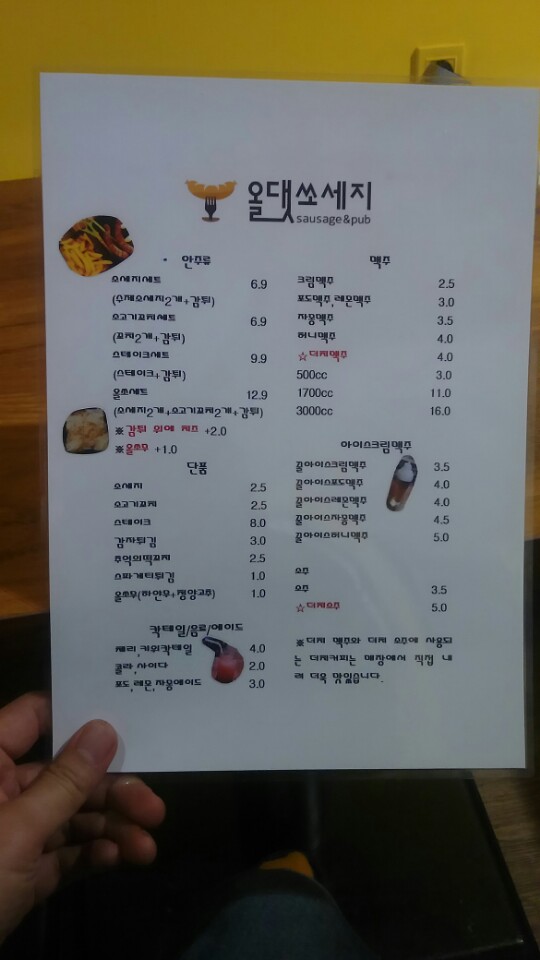 올댓쏘세지
sausage&pub
* 안주류
소세지세트 6.9
(수제소세지2개+감튀)
소고기꼬치세트 6.9
(꼬치2개+감튀)
스테이크세트 9.9
(스테이크+감튀)
올쏘세트 12.9
(소세지2개+소고기꼬치2개+감튀)
※감튀 위에 치즈 +2.0
※올쏘무 +1.0
단품
소세지 2.5
소고기꼬치 2.5
스테이크 8.0
감자튀김 3.0
추억의떡꼬치 2.5
스파게티튀김 1.0
올쏘무(하얀무+청양고추) 1.0
칵테일/음료/에이드
체리,키위칵테일 4.0
콜라,사이다 2.0
포도,레몬,자몽에이드 3.0
맥주
크림맥주 2.5
포도맥주,레몬맥주 3.0
자몽맥주 3.5
허니맥주 4.0
☆더치맥주 4.0
500cc 3.0
1700cc 11.0
3000cc 16.0
아이스크림맥주
꿀아이스크림맥주 3.5
꿀아이스포도맥주 4.0
꿀아이스레몬맥주 4.0
꿀아이스자몽맥주 4.5
꿀아이스허니맥주 5.0
소주
소주 3.5
☆더치소주 5.0
※더치 맥주와 더치 소주에 사용되
는 더치커피는 매장에서 직접 내
려 더욱 맛있습니다.